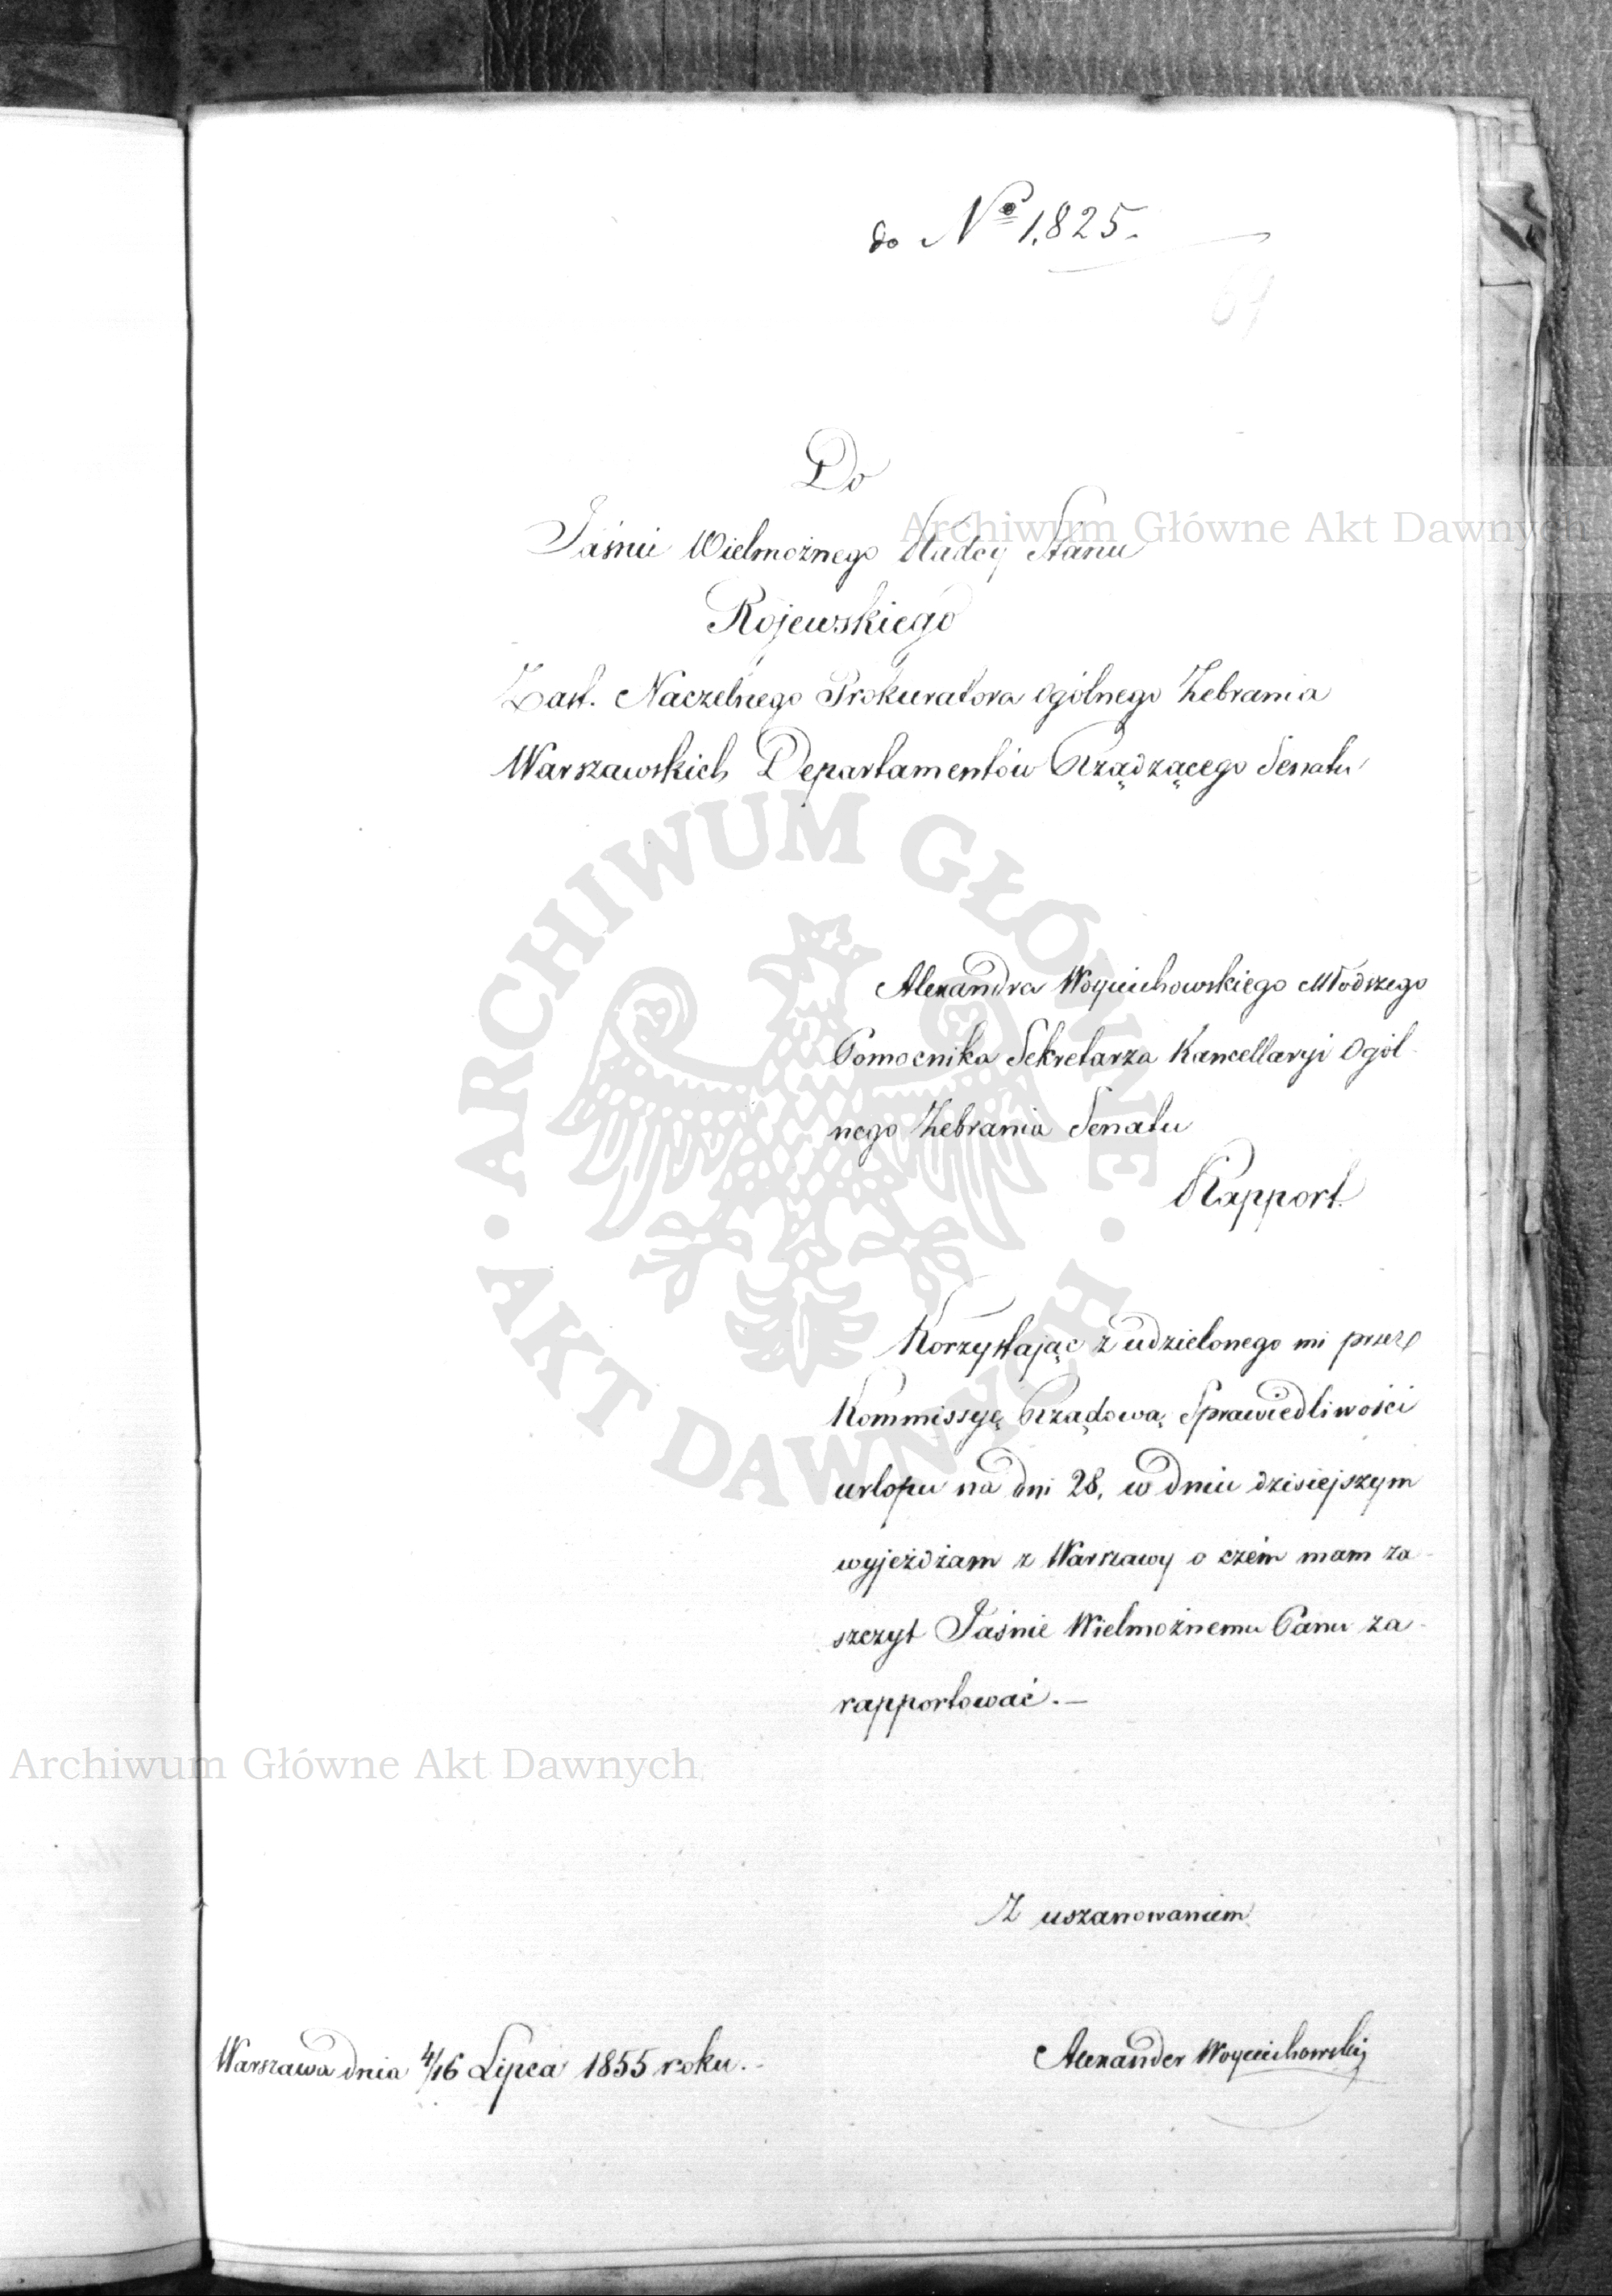 do No 1,825.
69
Do
Jaśnie Wielmożnego Radcy Stanu
Rojewskiego
Zast. Naczelnego Prokuratora Ogólnego Zebrania
Warszawskich Departamentów Rządzącego Senatu
Alexandra Woyciechowskiego Młodszego
Pomocnika Sekretarza Kancellaryi Ogól-
nego Zebrania Senatu
Rapport.
Korzystając z udzielonego mi przez
Kommissyę Rządową Sprawiedliwości
urlopu na dni 28, w dniu dzisiejszym
wyjeżdżam z Warszawy o czém mam za-
szczyt Jaśnie Wielmożnemu Panu za-
rapportować.—
Z uszanowaniem
Warszawa dnia 4/16 Lipca 1855 roku.-
Alexander Woyciechowski
Archiwum Główne Akt Dawnych
ARCHIWUM GŁÓWNE · AKT DAWNYCH ·
Archiwum Główne Akt Dawnych